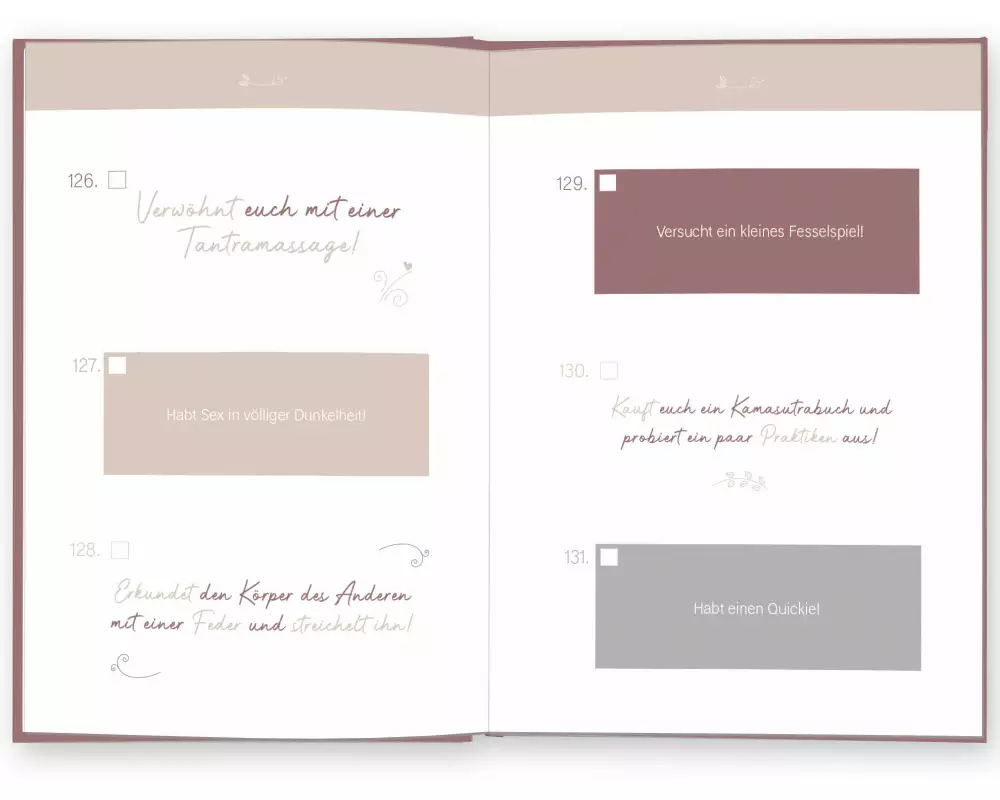 126.
Verwöhnt euch mit einer
Tantramassage!
127.
Habt Sex in völliger Dunkelheit!
128.
Erkundet den Körper des Anderen
mit einer Feder und streichelt ihn!
129.
Versucht ein kleines Fesselspiel!
130.
Kauft euch ein Kamasutrabuch und
probiert ein paar Praktiken aus!
131.
Habt einen Quickie!